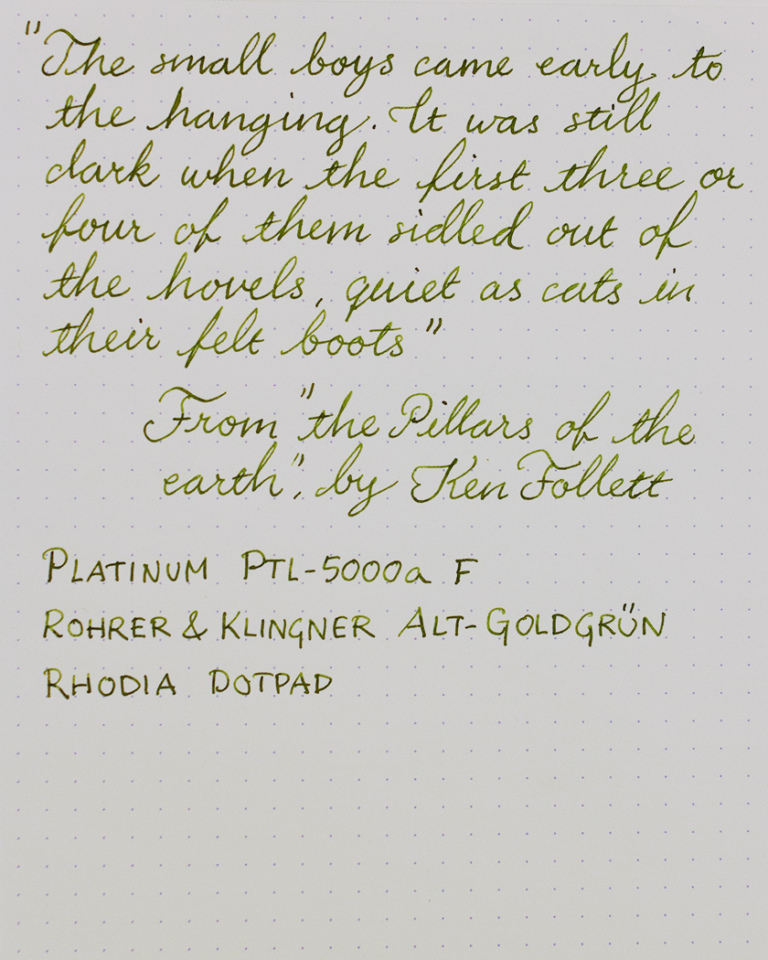 "The small boys came early to
the hanging. It was still
dark when the first three or
four of them sidled out of
the hovels, quiet as cats in
their felt boots"
From "the Pillars of the
earth", by Ken Follett
PLATINUM PTL-5000a F
ROHRER & KLINGNER ALT-GOLDGRÜN
RHODIA DOTPAD